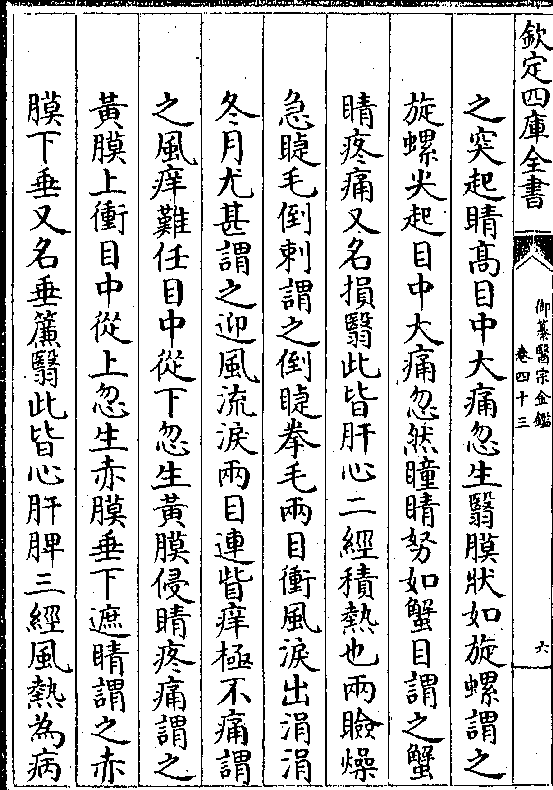 欽定四庫全書
御纂醫宗金鑑
卷四十三
六
之突起睛高目中大痛忽生翳膜狀如旋螺謂之
旋螺尖起目中大痛忽然瞳睛努如蟹目謂之蟹
睛疼痛又名損翳此皆肝心二經積熱也兩瞼燥
急睫毛倒刺謂之倒睫拳毛兩目衝風淚出涓涓
冬月尤甚謂之迎風流淚兩目連眥痒極不痛謂
之風痒難任目中從下忽生黃膜侵睛疼痛謂之
黃膜上衝目中從上忽生赤膜垂下遮睛謂之赤
膜下垂又名垂簾翳此皆心肝脾三經風熱為病